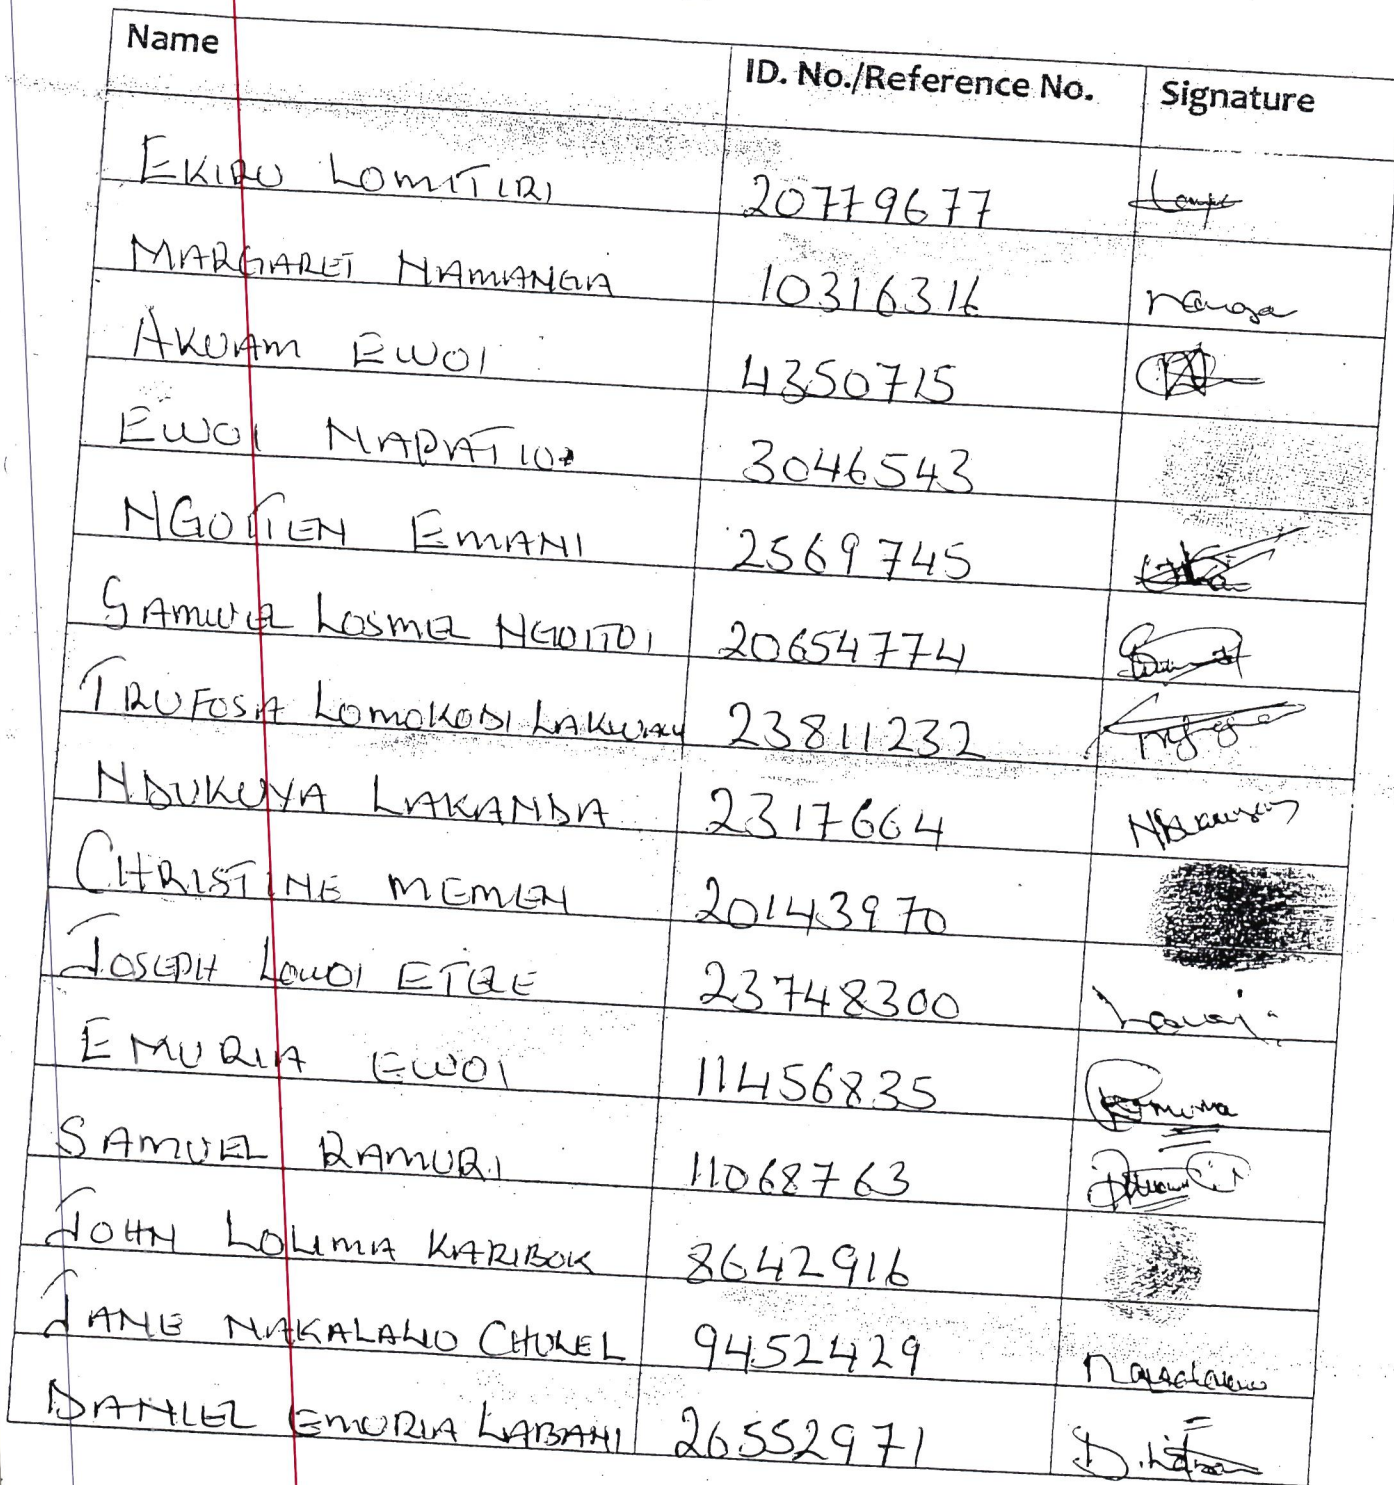 Name ID. No./Reference No. Signature
EKIRU LOMITIRI 20779677
MARGARET NAMANGA 10316316
AKUAM EWOI 4350715
EWOI NAPATIO 3046543
NGOITEN EMANI 2569745
SAMUEL LOSMEL NGOITOI 20654774
TRUFOSA LOMOKODI LAKUWAY 23811232
NDUKUYA LAKANDA 2317664
CHRISTINE MEMEN 20143970
JOSEPH LOWOI ETELE 23748300
EMURIA EWOI 11456835
SAMUEL RAMURI 11068763
JOHN LOLIMA KARIBOK 8642916
JANE NAKALALIO CHUKEL 9452429
DANIEL EMURIA LABANI 26552971